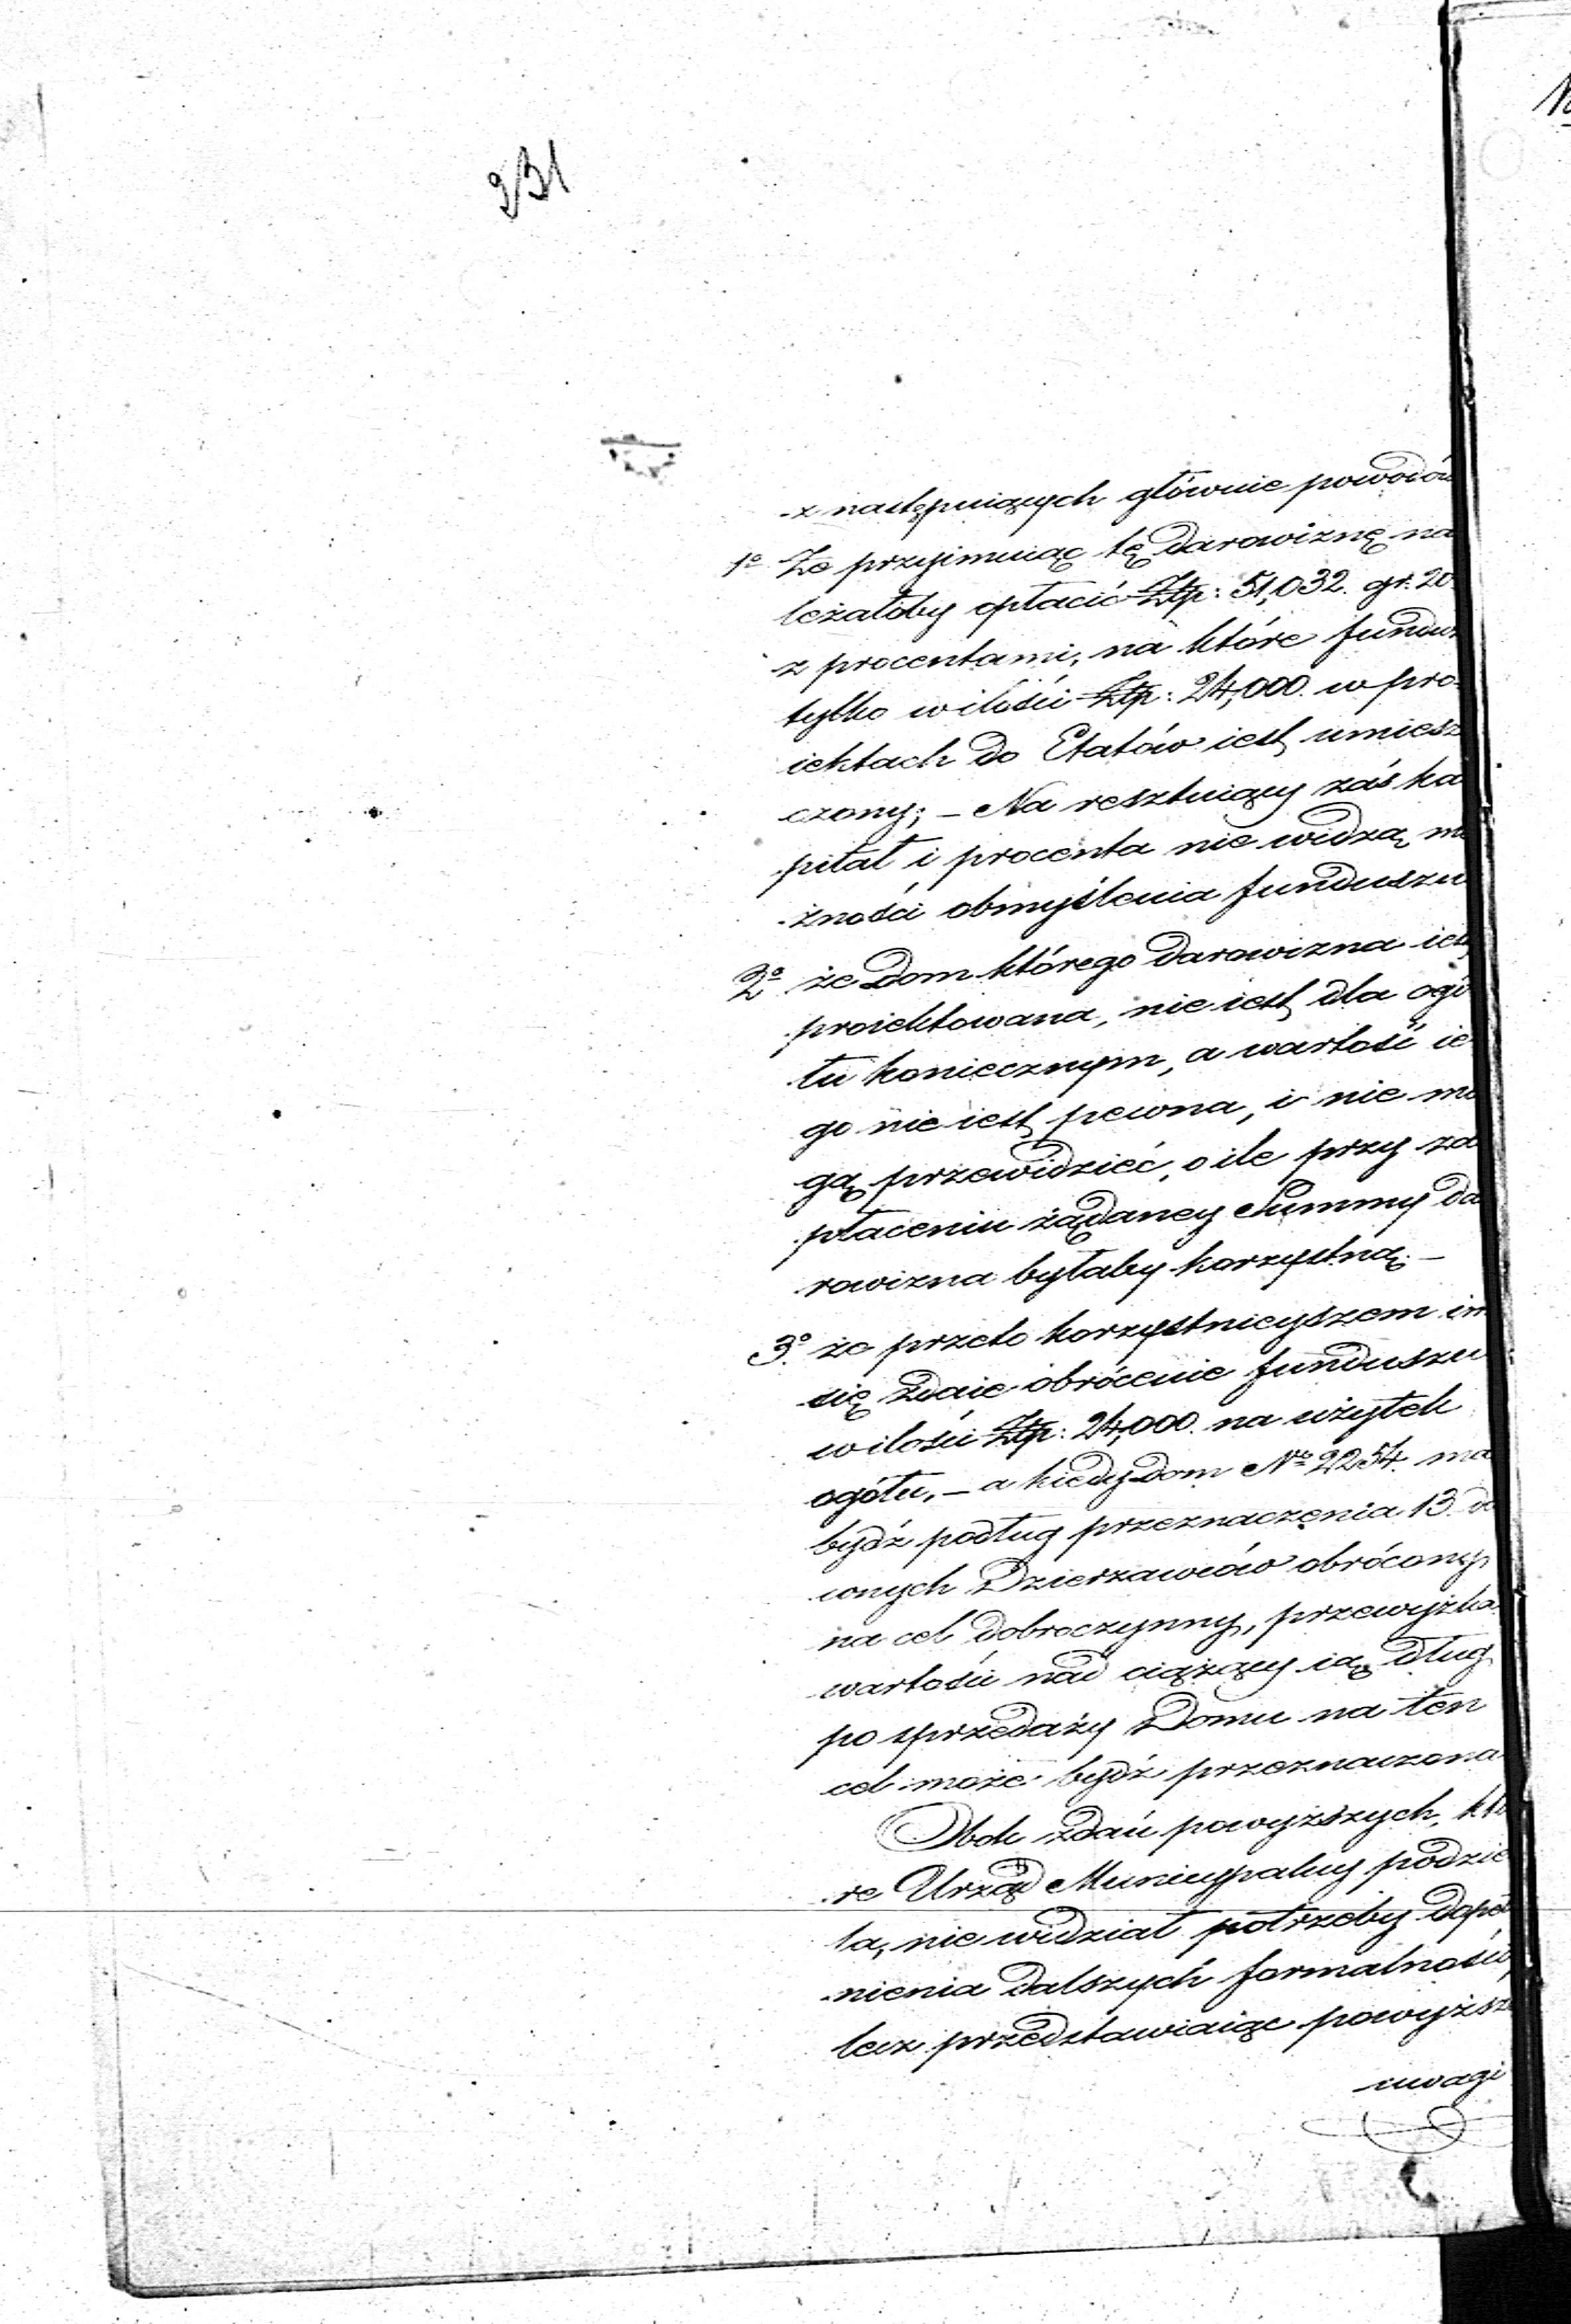 231
z następuiących głównie powodów
1º Że przyimuiąc tę darowiznę na
leżałoby opłacić Złp: 51,032. gr: 20
z procentami, na które fundusz
tylko w ilości Złp: 24,000. w pro-
iektach do Etatów iest umiesz
czony; – Na resztuiący zaś ka
pitał i procenta nie widzą mo
żności obmyślenia funduszu
2º że Dom którego darowizna iest
proiektowana, nie iest dla ogó
łu koniecznym, a wartość ie
go nie iest pewna, i nie mo
gą przewidzieć, o ile przy za
płaceniu żądaney Summy da
rowizna byłaby korzystną. –
3º. że przeto korzystnieyszem im
się zdaie obrócenie funduszu
w ilości Złp: 24,000. na użytek
ogółu, – a kiedy dom Nº 2254. ma
bydź podług przeznaczenia 13. da
wnych Dzierzawców obrócony
na cel dobroczynny, przewyżka
wartości nad ciążący ią dług
po sprzedaży Domu na ten
cel może bydź przeznaczona
Obok zdań powyższych, któ
re Urząd Municypalny podzie
la, nie widział potrzeby dopeł
nienia dalszych formalności,
lecz przedstawiaiąc powyższe
uwagi